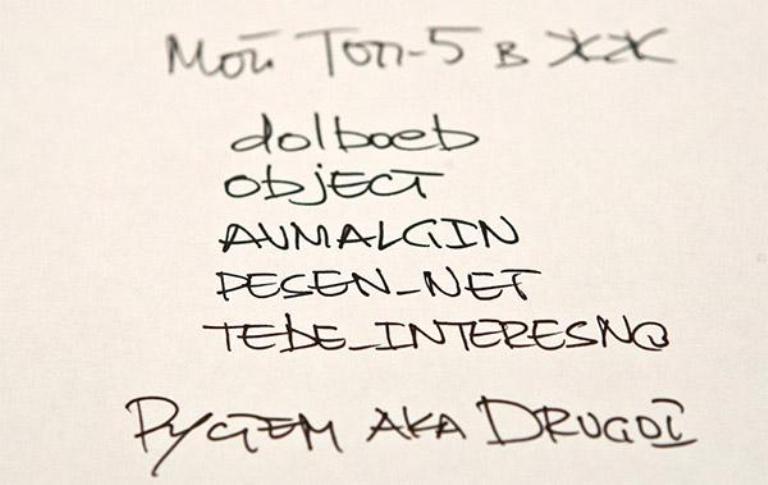 Мой Топ-5 в ЖЖ
dolboeb
object
AVMALGIN
PESEN_NET
TEBE_INTERESNO
Рустем AKA DRUGOI